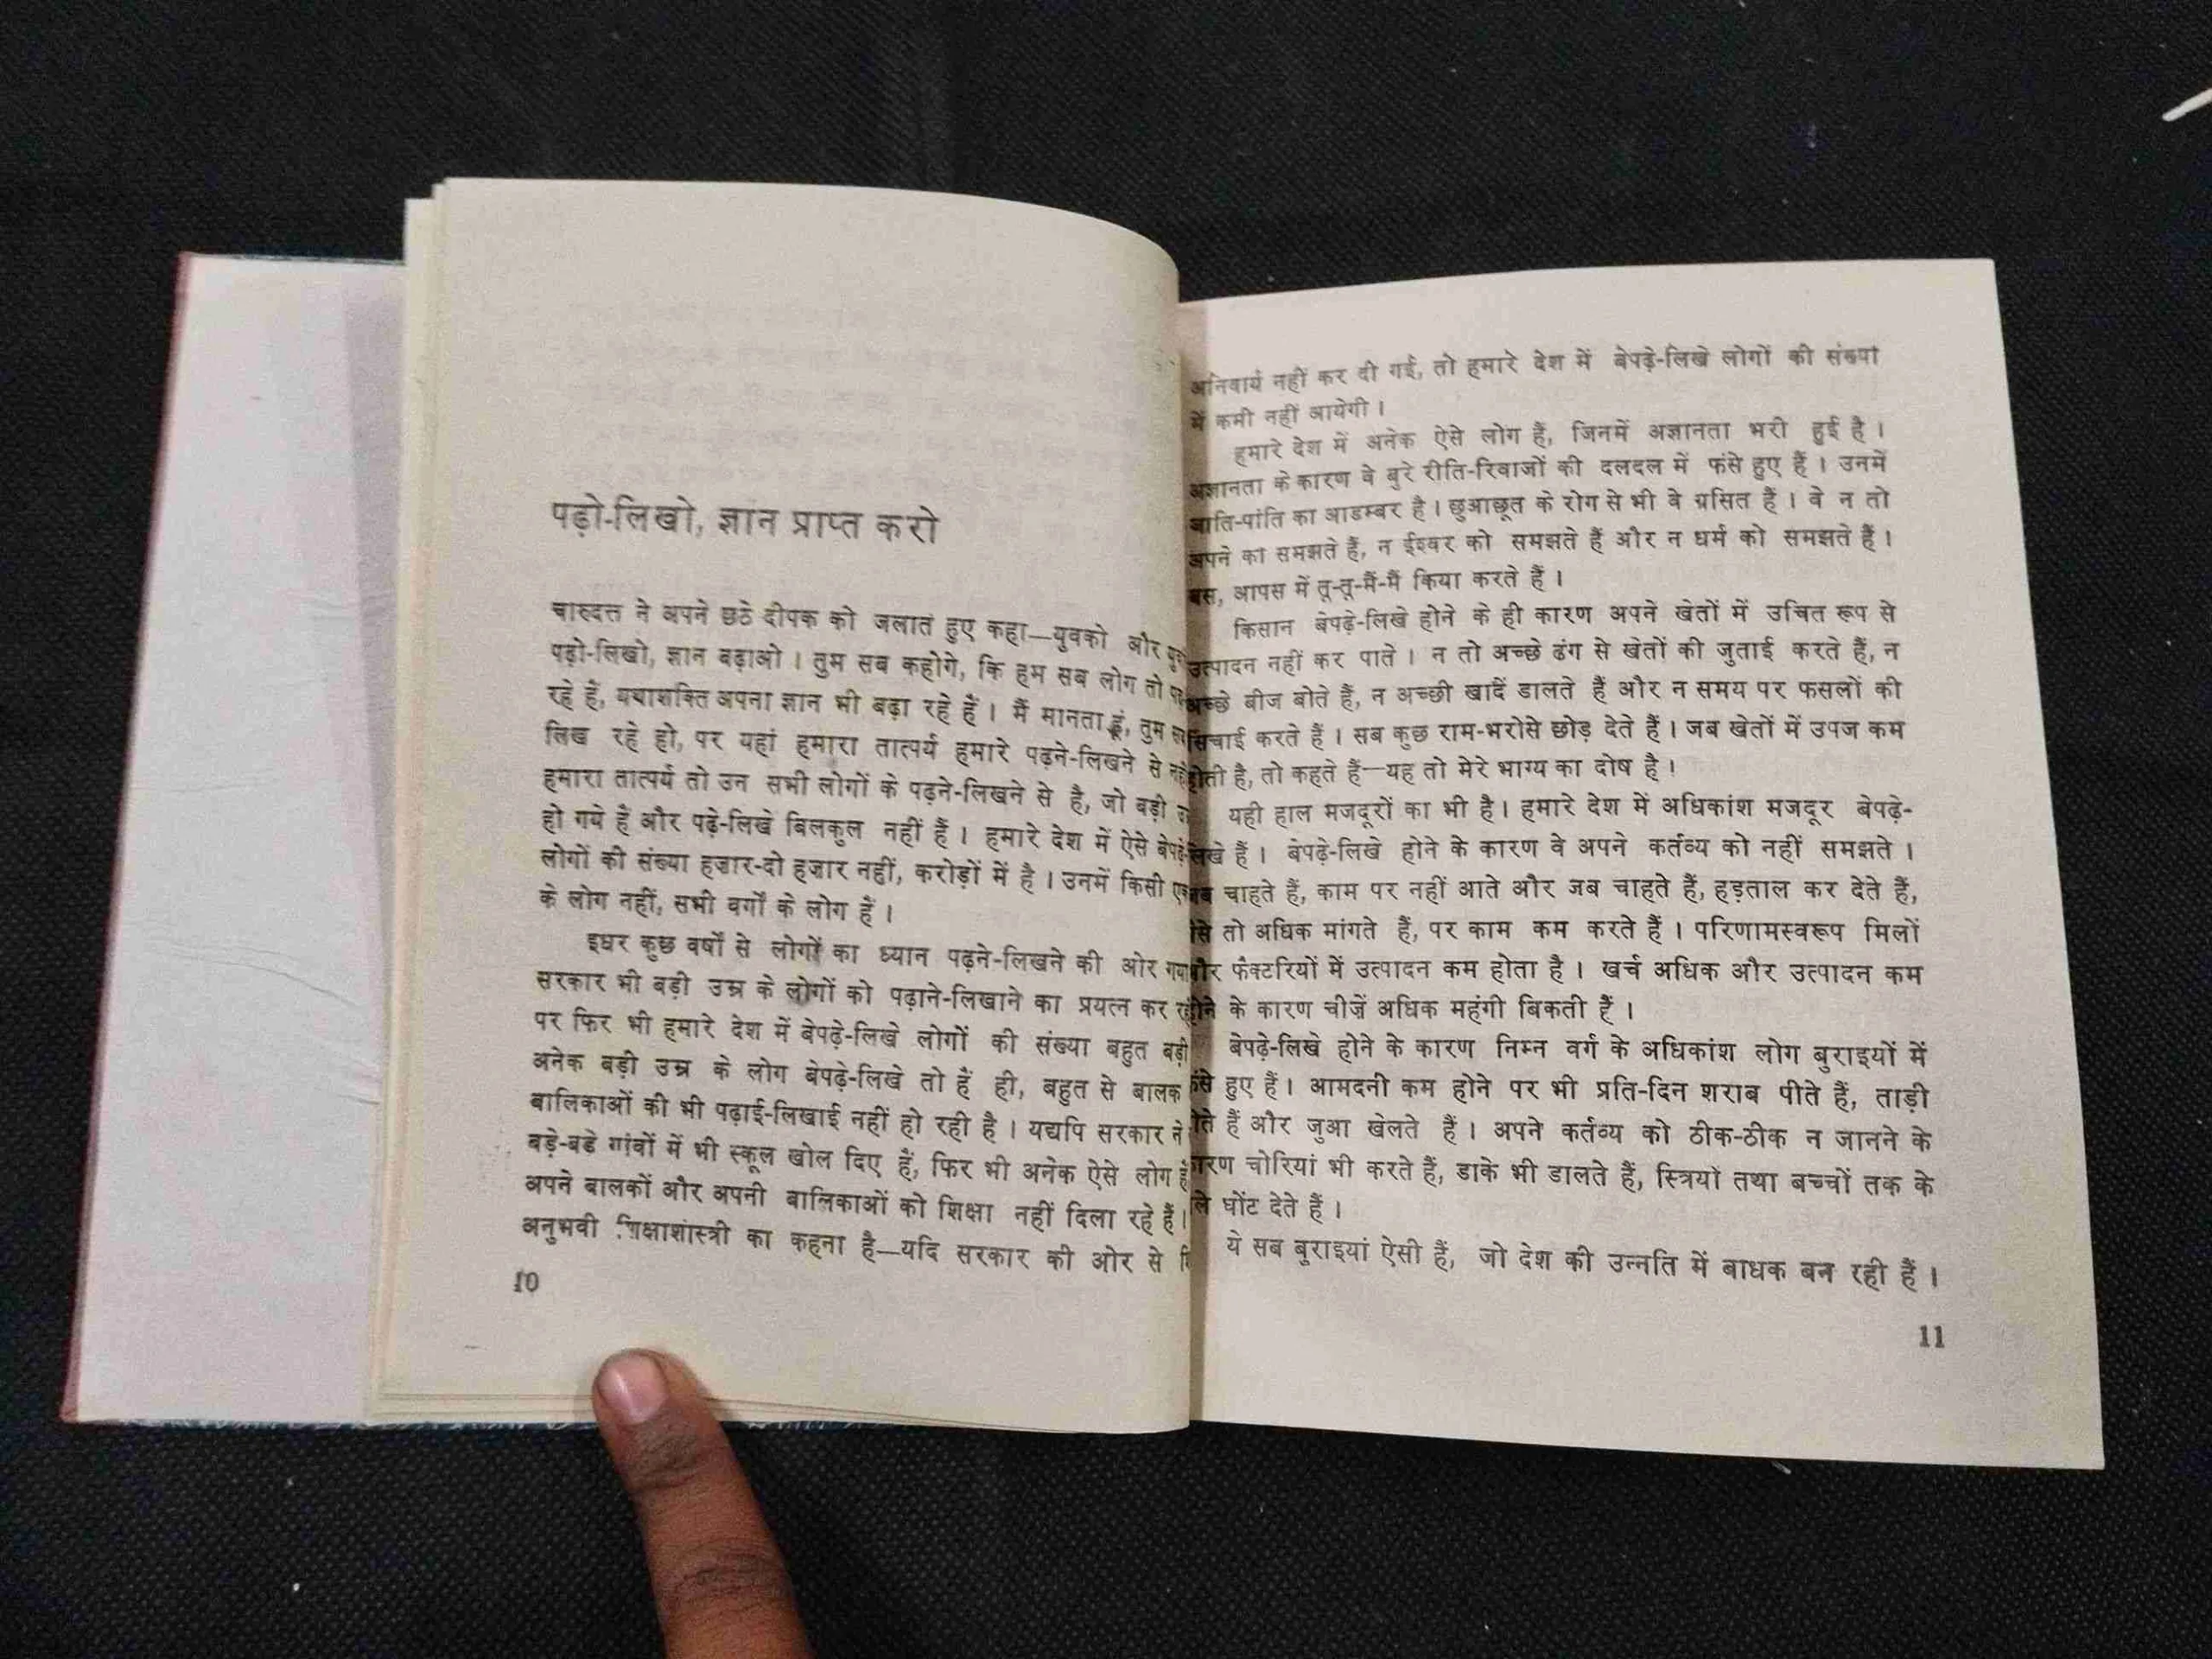 पढ़ो-लिखो, ज्ञान प्राप्त करो
चारुदत्त ने अपने छठे दीपक को जलाते हुए कहा—युवको और
पढ़ो-लिखो, ज्ञान बढ़ाओ । तुम सब कहोगे, कि हम सब लोग तो
रहे हैं, यथाशक्ति अपना ज्ञान भी बढ़ा रहे हैं । मैं मानता हूं, तुम
लिख रहे हो, पर यहां हमारा तात्पर्य हमारे पढ़ने-लिखने से
हमारा तात्पर्य तो उन सभी लोगों के पढ़ने-लिखने से है, जो बड़ी
हो गये हैं और पढ़े-लिखे बिलकुल नहीं हैं । हमारे देश में ऐसे
लोगों की संख्या हजार-दो हजार नहीं, करोड़ों में है । उनमें किसी
के लोग नहीं, सभी वर्गों के लोग हैं ।
इधर कुछ वर्षों से लोगों का ध्यान पढ़ने-लिखने की ओर
सरकार भी बड़ी उम्र के लोगों को पढ़ाने-लिखाने का प्रयत्न कर
पर फिर भी हमारे देश में बेपढ़े-लिखे लोगों की संख्या बहुत बड़ी
अनेक बड़ी उम्र के लोग बेपढ़े-लिखे तो हैं ही, बहुत से बालक
बालिकाओं की भी पढ़ाई-लिखाई नहीं हो रही है । यद्यपि सरकार ने
बड़े-बडे गांवों में भी स्कूल खोल दिए हैं, फिर भी अनेक ऐसे लोग
अपने बालकों और अपनी बालिकाओं को शिक्षा नहीं दिला रहे हैं ।
अनुभवी शिक्षाशास्त्री का कहना है—यदि सरकार की ओर से
10
अनिवार्य नहीं कर दी गई, तो हमारे देश में बेपढ़े-लिखे लोगों की संख्या
में कमी नहीं आयेगी ।
हमारे देश में अनेक ऐसे लोग हैं, जिनमें अज्ञानता भरी हुई है ।
अज्ञानता के कारण वे बुरे रीति-रिवाजों की दलदल में फंसे हुए हैं । उनमें
जाति-पांति का आडम्बर है । छुआछूत के रोग से भी वे ग्रसित हैं । वे न तो
अपने को समझते हैं, न ईश्वर को समझते हैं और न धर्म को समझते हैं ।
बस, आपस में तू-तू-मैं-मैं किया करते हैं ।
किसान बेपढ़े-लिखे होने के ही कारण अपने खेतों में उचित रूप से
उत्पादन नहीं कर पाते । न तो अच्छे ढंग से खेतों की जुताई करते हैं, न
अच्छे बीज बोते हैं, न अच्छी खादें डालते हैं और न समय पर फसलों की
सिंचाई करते हैं । सब कुछ राम-भरोसे छोड़ देते हैं । जब खेतों में उपज कम
होती है, तो कहते हैं—यह तो मेरे भाग्य का दोष है !
यही हाल मजदूरों का भी है । हमारे देश में अधिकांश मजदूर बेपढ़े-
लिखे हैं । बेपढ़े-लिखे होने के कारण वे अपने कर्तव्य को नहीं समझते ।
जब चाहते हैं, काम पर नहीं आते और जब चाहते हैं, हड़ताल कर देते हैं,
तो अधिक मांगते हैं, पर काम कम करते हैं । परिणामस्वरूप मिलों
और फैक्टरियों में उत्पादन कम होता है । खर्च अधिक और उत्पादन कम
होने के कारण चीजें अधिक महंगी बिकती हैं ।
बेपढ़े-लिखे होने के कारण निम्न वर्ग के अधिकांश लोग बुराइयों में
फंसे हुए हैं । आमदनी कम होने पर भी प्रति-दिन शराब पीते हैं, ताड़ी
पीते हैं और जुआ खेलते हैं । अपने कर्तव्य को ठीक-ठीक न जानने के
कारण चोरियां भी करते हैं, डाके भी डालते हैं, स्त्रियों तथा बच्चों तक के
गले घोंट देते हैं ।
ये सब बुराइयां ऐसी हैं, जो देश की उन्नति में बाधक बन रही हैं ।
11